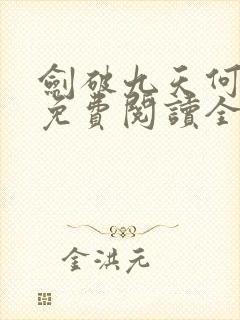 劍破九天何
免費閱讀全
金洪元